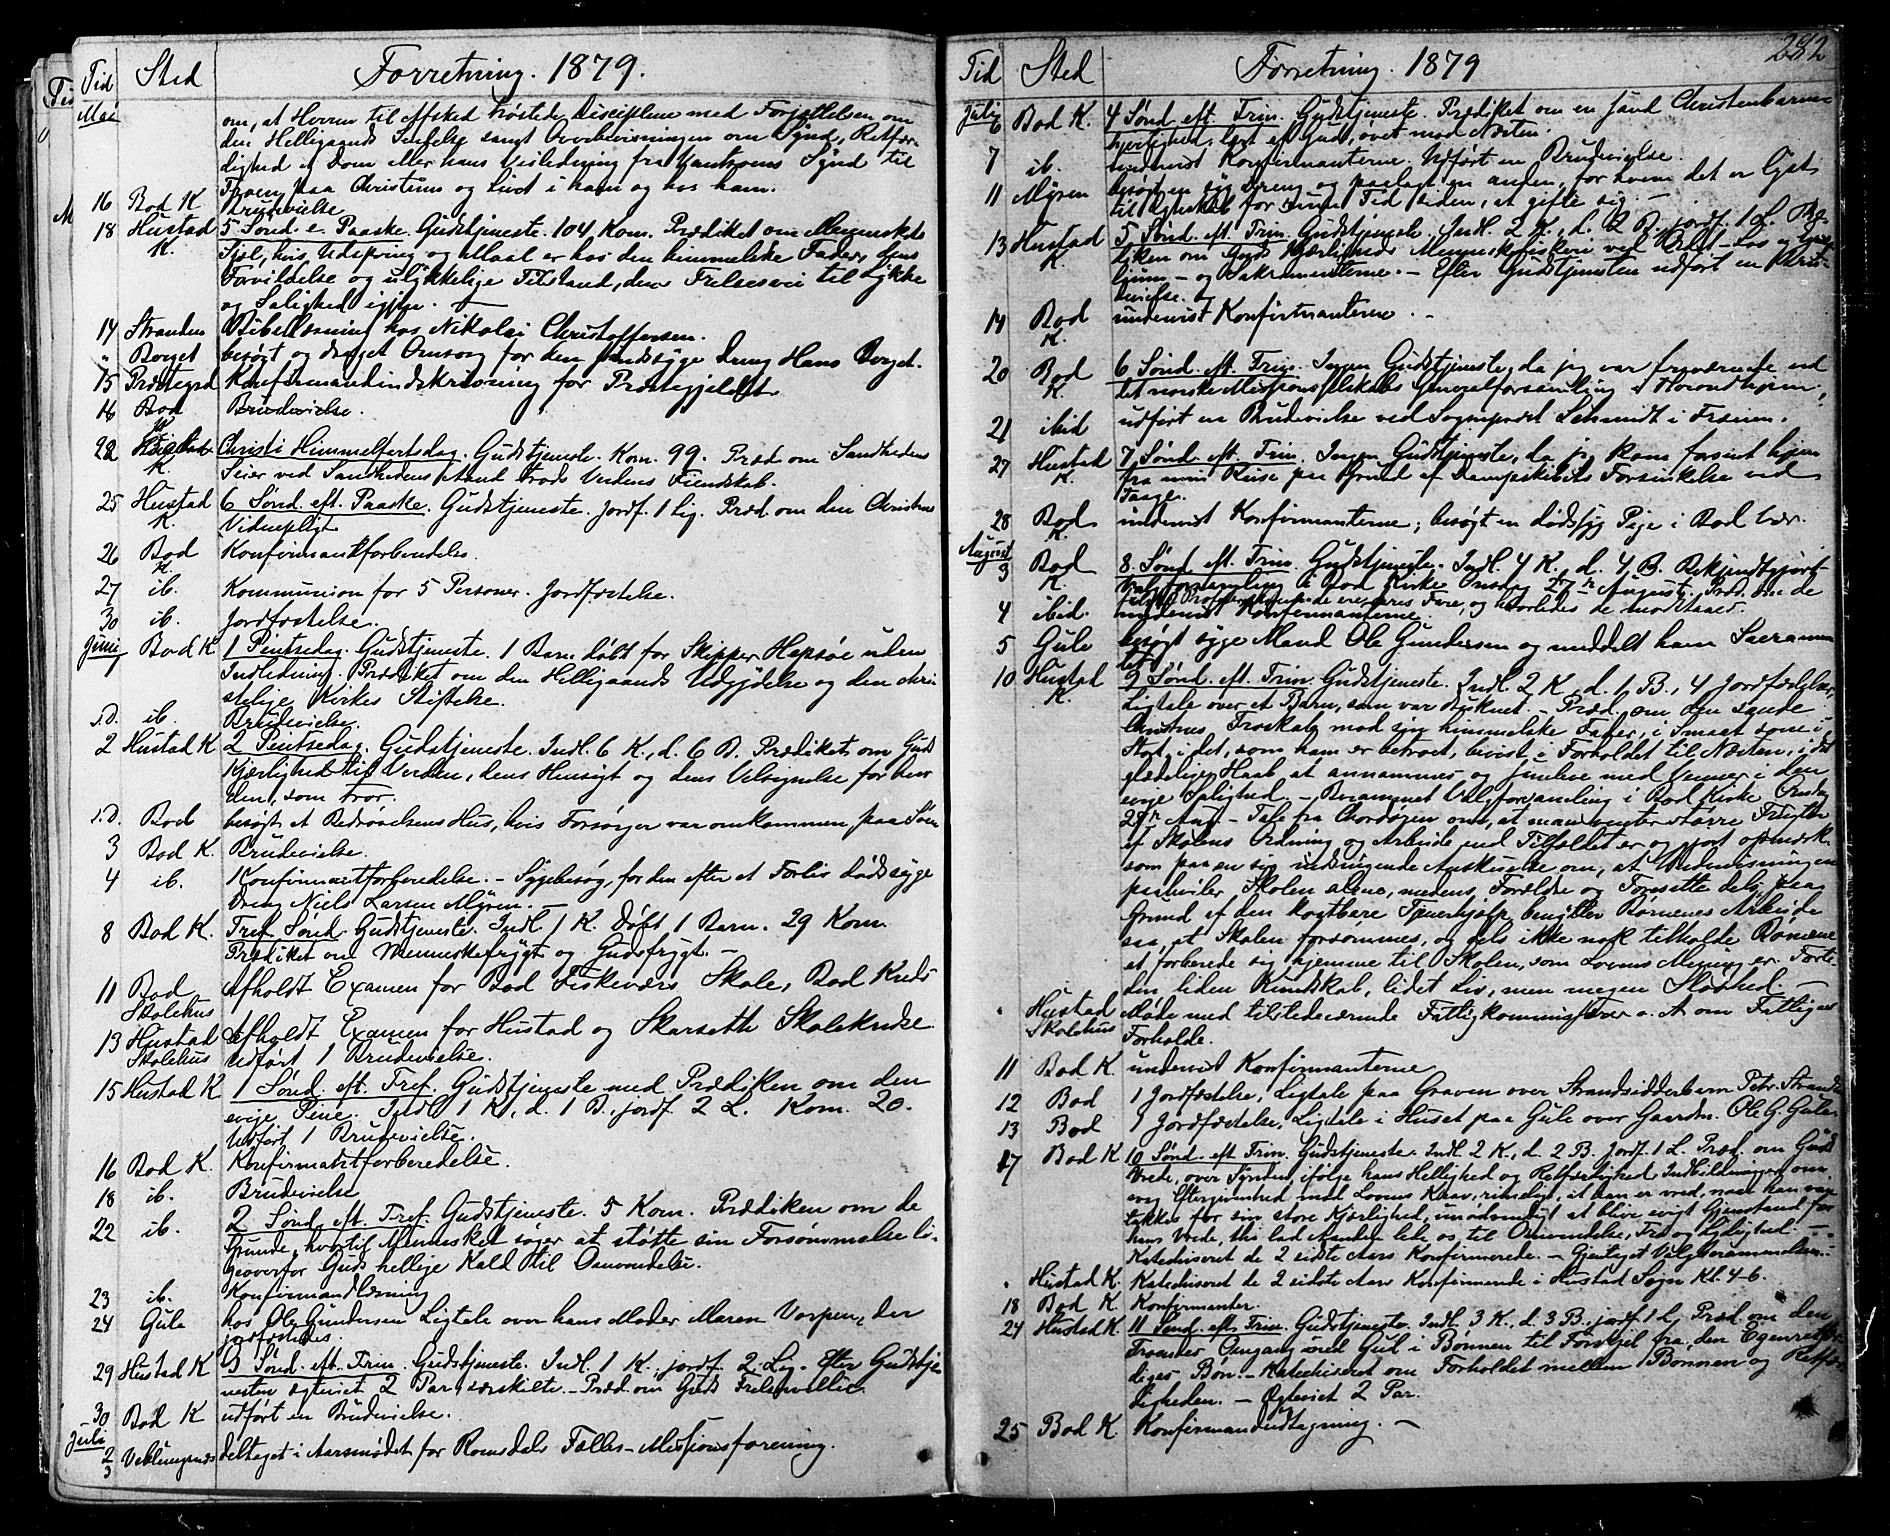 Tid Sted Forretning. 1879.
Mai om, at Herren til Afsked trøstede Disciplene med Forjættelsen om
den Helligaands Sendelse samt Overbevisningen om Synd, Retfær-
dighed og Dom eller hans Veiledning fra Vantroens Synd til
Troen paa Christum og Livet i ham og hos ham.
16 Bod K Brudevielse
18 Hustad K. 5 Sønd. e. Paaske. Gudstjeneste. 104 Kom. Prædiket om Menneskets
Sjæl, hvis Udspring og Maal er hos den himmelske Fader, dens
Forvildelse og ulykkelige Tilstand, dens Frelsesvei til Lykke
og Salighed igjen.
14 Stranden Bibellæsning hos Nikolai Christoffersen.
" Borget besøgt og draget Omsorg for den sindssyge Dreng Hans Borget.
15 Præstegrd Konfirmandindskrivning for Præstegjeldet
16 Bod K Brudevielse.
22 K. Christi Himmelfartsdag. Gudstjeneste. Kom. 99. Præd. om Sandhedens
Seier ved Sandhedens Aand trods Verdens Fiendskab.
25 Hustad K. 6 Sønd. eft. Paaske. Gudstjeneste. Jordf. 1 Lig. Præd. om den Christnes
Vidnepligt
26 Bod K. Konfirmantforberedelse.
27 ib. Kommunion for 5 Personer. Jordfæstelse.
30 ib. Jordfæstelse.
Juni 1 Bod K 1 Pintsedag. Gudstjeneste. 1 Barn døbt for Skipper Hepsøe uden
Indledning. Prædiket om den Helligaands Udgydelse og den chri-
stelige Kirkes Stiftelse.
s.D. ib. Brudevielse.
2 Hustad K 2 Pintsedag. Gudstjeneste. Indl. 6 K., d. 6 B. Prædiket om Guds
Kjærlighed til Verden, dens Hensigt og dens Velsignelse for hver
den, som tror.
s.D. Bod besøgt et Bedrøvelsens Hus, hvis Forsørger var omkommen paa Søen
3 Bod K. Brudevielse.
4 ib. Konfirmantforberedelse. – Sygebesøg, for den efter et Forliis dødssyge
Dreng Niels Larsen Myren. –
8 Bod K. Tref. Sønd. Gudstjeneste. Indl. 1 K. Døbt 1 Barn. 29 Kom.
Prædiket om Menneskefrygt og Gudsfrygt. –
11 Bod Skolehus Afholdt Examen for Bod Fiskeværs Skole, Bod Kreds
13 Hustad Skolehus Afholdt Examen for Hustad og Skarseth Skolekredse.
Udført 1 Brudevielse.
15 Hustad K 1 Sønd. eft. Tref. Gudstjeneste med Prædiken om den
evige Pine. Indl. 1 K., d. 1 B., jordf. 2 L. Kom. 20.
Udført 1 Brudevielse.
16 Bod K. Konfirmantforberedelse.
18 ib. Brudevielse
22 ib. 2 Sønd. eft. Tref. Gudstjeneste. 5 Kom. Prædiken om de
Grunde, hvortil Mennesket søger at støtte sin Forsømmelse li-
geoverfor Guds hellige Kald til Omvendelse.
23 ib. Konfirmandlæsning
24 Gule hos Ole Gundersen Ligtale over hans Moder Maren Vorpen, der
jordfæstedes.
29 Hustad K 3 Sønd. eft. Trim. Gudstjeneste. Indl. 1 K., jordf. 2 Lig. Efter Gudstje-
nesten ægteviet 2 Par særskilte. – Præd. om Guds Frelsesvillie
30 Bod K udført en Brudevielse.
Juli 2 3 Veblungsnæs deltaget i Aarsmødet for Romsdals Fælles-Missionsforening.
Tid Sted Forretning. 1879 282
Juli 6 Bod K. 4 Sønd. eft. Trim. Gudstjeneste. Prædiket om en sand Christenbarm-
hjertighed, lært af Gud, øvet mod Næsten.
7 ib. undervist Konfirmanterne. Udført en Brudevielse.
11 Myren besøgt en syg Dreng og paalagt en anden, for hvem det er lyst
til Ægteskab for Tid siden, at gifte sig. –
13 Hustad K. 5 Sønd. eft. Trim. Gudstjeneste. Indl. 2 K., d. 2 B. jordf. 1 L. Præ-
diken om Guds Kjærligheds Menneskefiskeri ved
– og Sakramenterne. – Efter Gudstjenesten udført en Brude-
vielse.
14 Bod K. undervist Konfirmanterne. –
20 Bod K. 6 Sønd. eft. Trim. Ingen Gudstjeneste, da jeg var fraværende ved
det norske Missionsselskabs Generalforsamling i Throndhjem,
21 ibid udført en Brudevielse ved Sognepræst Schmidt i Fræna.
27 Hustad K. 7 Sønd. eft. Trim. Ingen Gudstjeneste, da jeg kom forsent hjem
fra min Reise paa Grund af Dampskibets Forsinkelse ved
Taage.
28 Bod K. undervist Konfirmanterne; besøgt en dødssyg Pige i Bod Vær.
August 3 Bod K. 8 Sønd. eft. Trim. Gudstjeneste. Indl. 4 K., d. 4 B. Bekjendtgjort
Valgforsamling i Bod Kirke Onsdag 27de August. Præd. om de
falske Propheter, de ere, deres Fare, og hvorledes de modstaaes.
4 ibid. undervist Konfirmanterne.
5 Gule besøgt syge Mand Ole Gundersen og meddelt ham Sacramen-
tet.
10 Hustad K. 9 Sønd. eft. Trim. Gudstjeneste. Indl. 2 K., d. 1 B., 4 Jordfæstelser.
Ligtale over et Barn, som var druknet. – Præd. om den sande
Christnes Troskab mod sin himmelske Fader, i Smaat som i
Stort, i det, som ham er betroet, bevist i Forholdet til Næsten, i det
glædelige Haab at annammes og samles med Venner i den
evige Salighed. – Berammet Valgforsamling i Bod Kirke Onsdag
27de Aug. – Tale fra Chordøren om, at man venter større Frugter
af Skolens Ordning og Arbeide end Tilfældet er og gjort opmærk-
som paa en sig indsnigende Anskuelse om, at Undervisningen
paahviler Skolen alene, medens Forældre og Foresatte dels paa
Grund af den kostbare Tjenerhjælp benytter Børnenes Arbeide
saa, at Skolen forsømmes, og dels ikke nok tilholde Børnene
at forberede sig hjemme til Skolen, som Lovens Mening er. Forti-
den liden Kundskab, lidet Liv, men megen Sløvhed. –
" Hustad Skolehus Møde med tilstedeværende Fattigkommissærer o. A. om Fattiges
Forholde.
11 Bod K. undervist Konfirmanterne
12 Bod 1 Jordfæstelse, Ligtale paa Graven over Strandsidderbarn Petr. Strande
13 Bod 1 Jordfæstelse, Ligtale i Huset paa Gule over Gaardm. Ole G. Gule.
17 Bod K 10 Sønd. eft. Trim. Gudstjeneste. Indl. 2 K., d. 2 B. Jordf. 1 L. Præd. om Guds
Vrede, over Synden, ifølge hans Hellighed og Retfærdighed. Indbildningen om
evig Eftergivenhed mod Lovens Krav, rimeligt, at han er vred, naar han van-
tækkes for sin store Kjærlighed, unødvendigt at blive evigt Gjenstand for
hans Vrede, thi lad Aanden lede os til Omvendelse, Tro og Lydighed –
Katechiseret de 2 sidste Aars Konfirmerede. – Gjentaget Valgberammelsen. –
" Hustad K. Katechiseret de 2 sidste Aars Konfirmerede i Hustad Sogn Kl. 4-6.
18 Bod K Konfirmanter.
24 Hustad K. 11 Sønd. eft. Trim. Gudstjeneste. Indl. 3 K., d. 3 B., jordf. 1 L. Præd. om den
Troendes Omgang med Gud i Bønnen til Forskjel fra den Egenretfær-
diges Bøn. – Katechiseret om Forholdet mellem Bønnen og Retfær-
digheden. – Ægteviet 2 Par.
25 Bod K Konfirmandudtagning. –